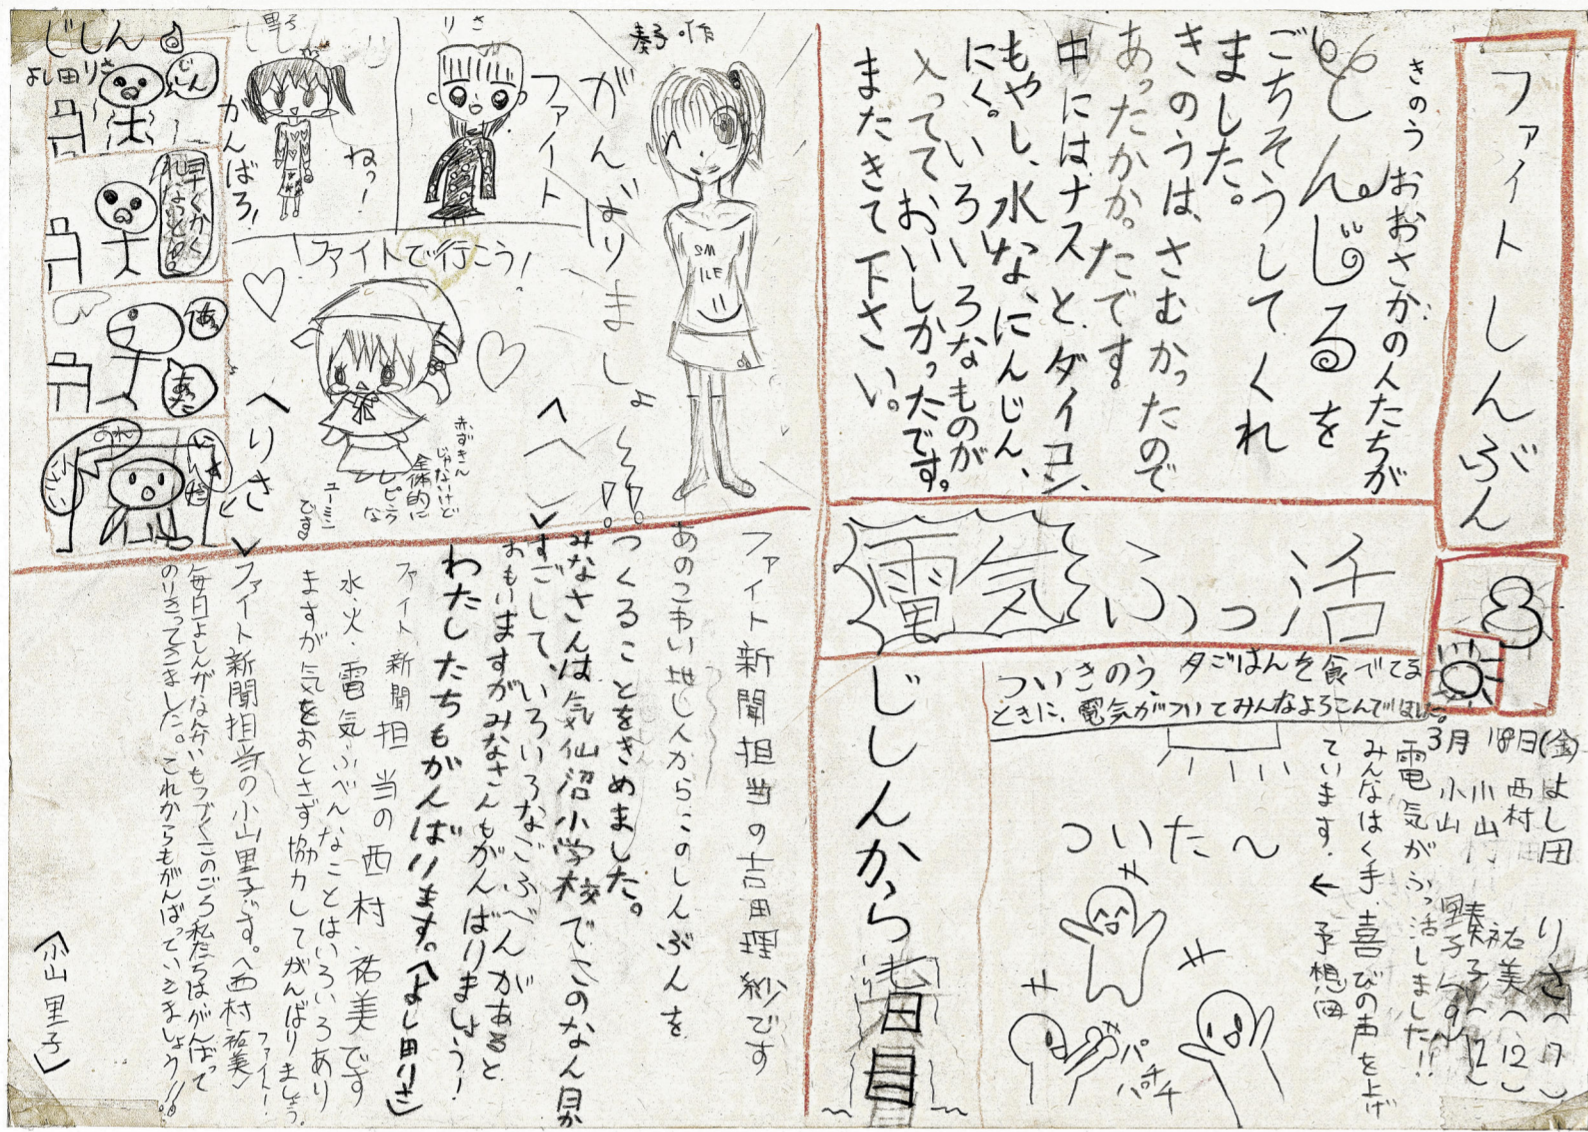 ファイトしんぶん
8
3月18日(金)
よし田 りさ(7)
西村 祐美(12)
小山 奏子(12)
小山 里子
きのうおおさかの人たちが
とんじるを
ごちそうしてくれ
ました。
きのうは、さむかったので
あったかかったです。
中にはナスと、ダイコン、
もやし、水な、にんじん、
にく。いろいろなものが
入っておいしかったです。
またきて下さい。
電気ふっ活
ついきのう、夕ごはんを食べてる
ときに、電気がついてみんなよろこんでました。
電気がふっ活しました!!
みんなはく手、喜びの声を上げ
ています。← 予想図
ついた〜
パチ
パチ
じしんから七日目
奏子・作
がんばりましょう!!
SM
ILE
りさ
ファイト
里子
ねっ!
がんばろ!
ファイトで行こう!
赤ずきん
じゃないけど
全体的に
ユーミン
です
じしん
よし田りさ
じしん
早くかく
れなきゃ
あっ
あった
へりさ
ファイト新聞担当の吉田理紗です
あのこわい地しんからこのしんぶんを
つくることをきめました。
みなさんは気仙沼小学校でこのなん日か
すごして、いろいろなごふべんがあると
おもいますがみなさんもがんばりましょう!
わたしたちもがんばります。(よし田りさ)
ファイト新聞担当の西村祐美です
水・火・電気ふべんなことはいろいろあり
ますが気をおとさず協力してがんばりましょう。
(西村祐美)
ファイト新聞担当の小山里子です。
ファイト!
毎日よしんがなん分いもつづくこのごろ私たちはがんばって
のりきってきました。これからもがんばっていきましょう!!
(小山里子)